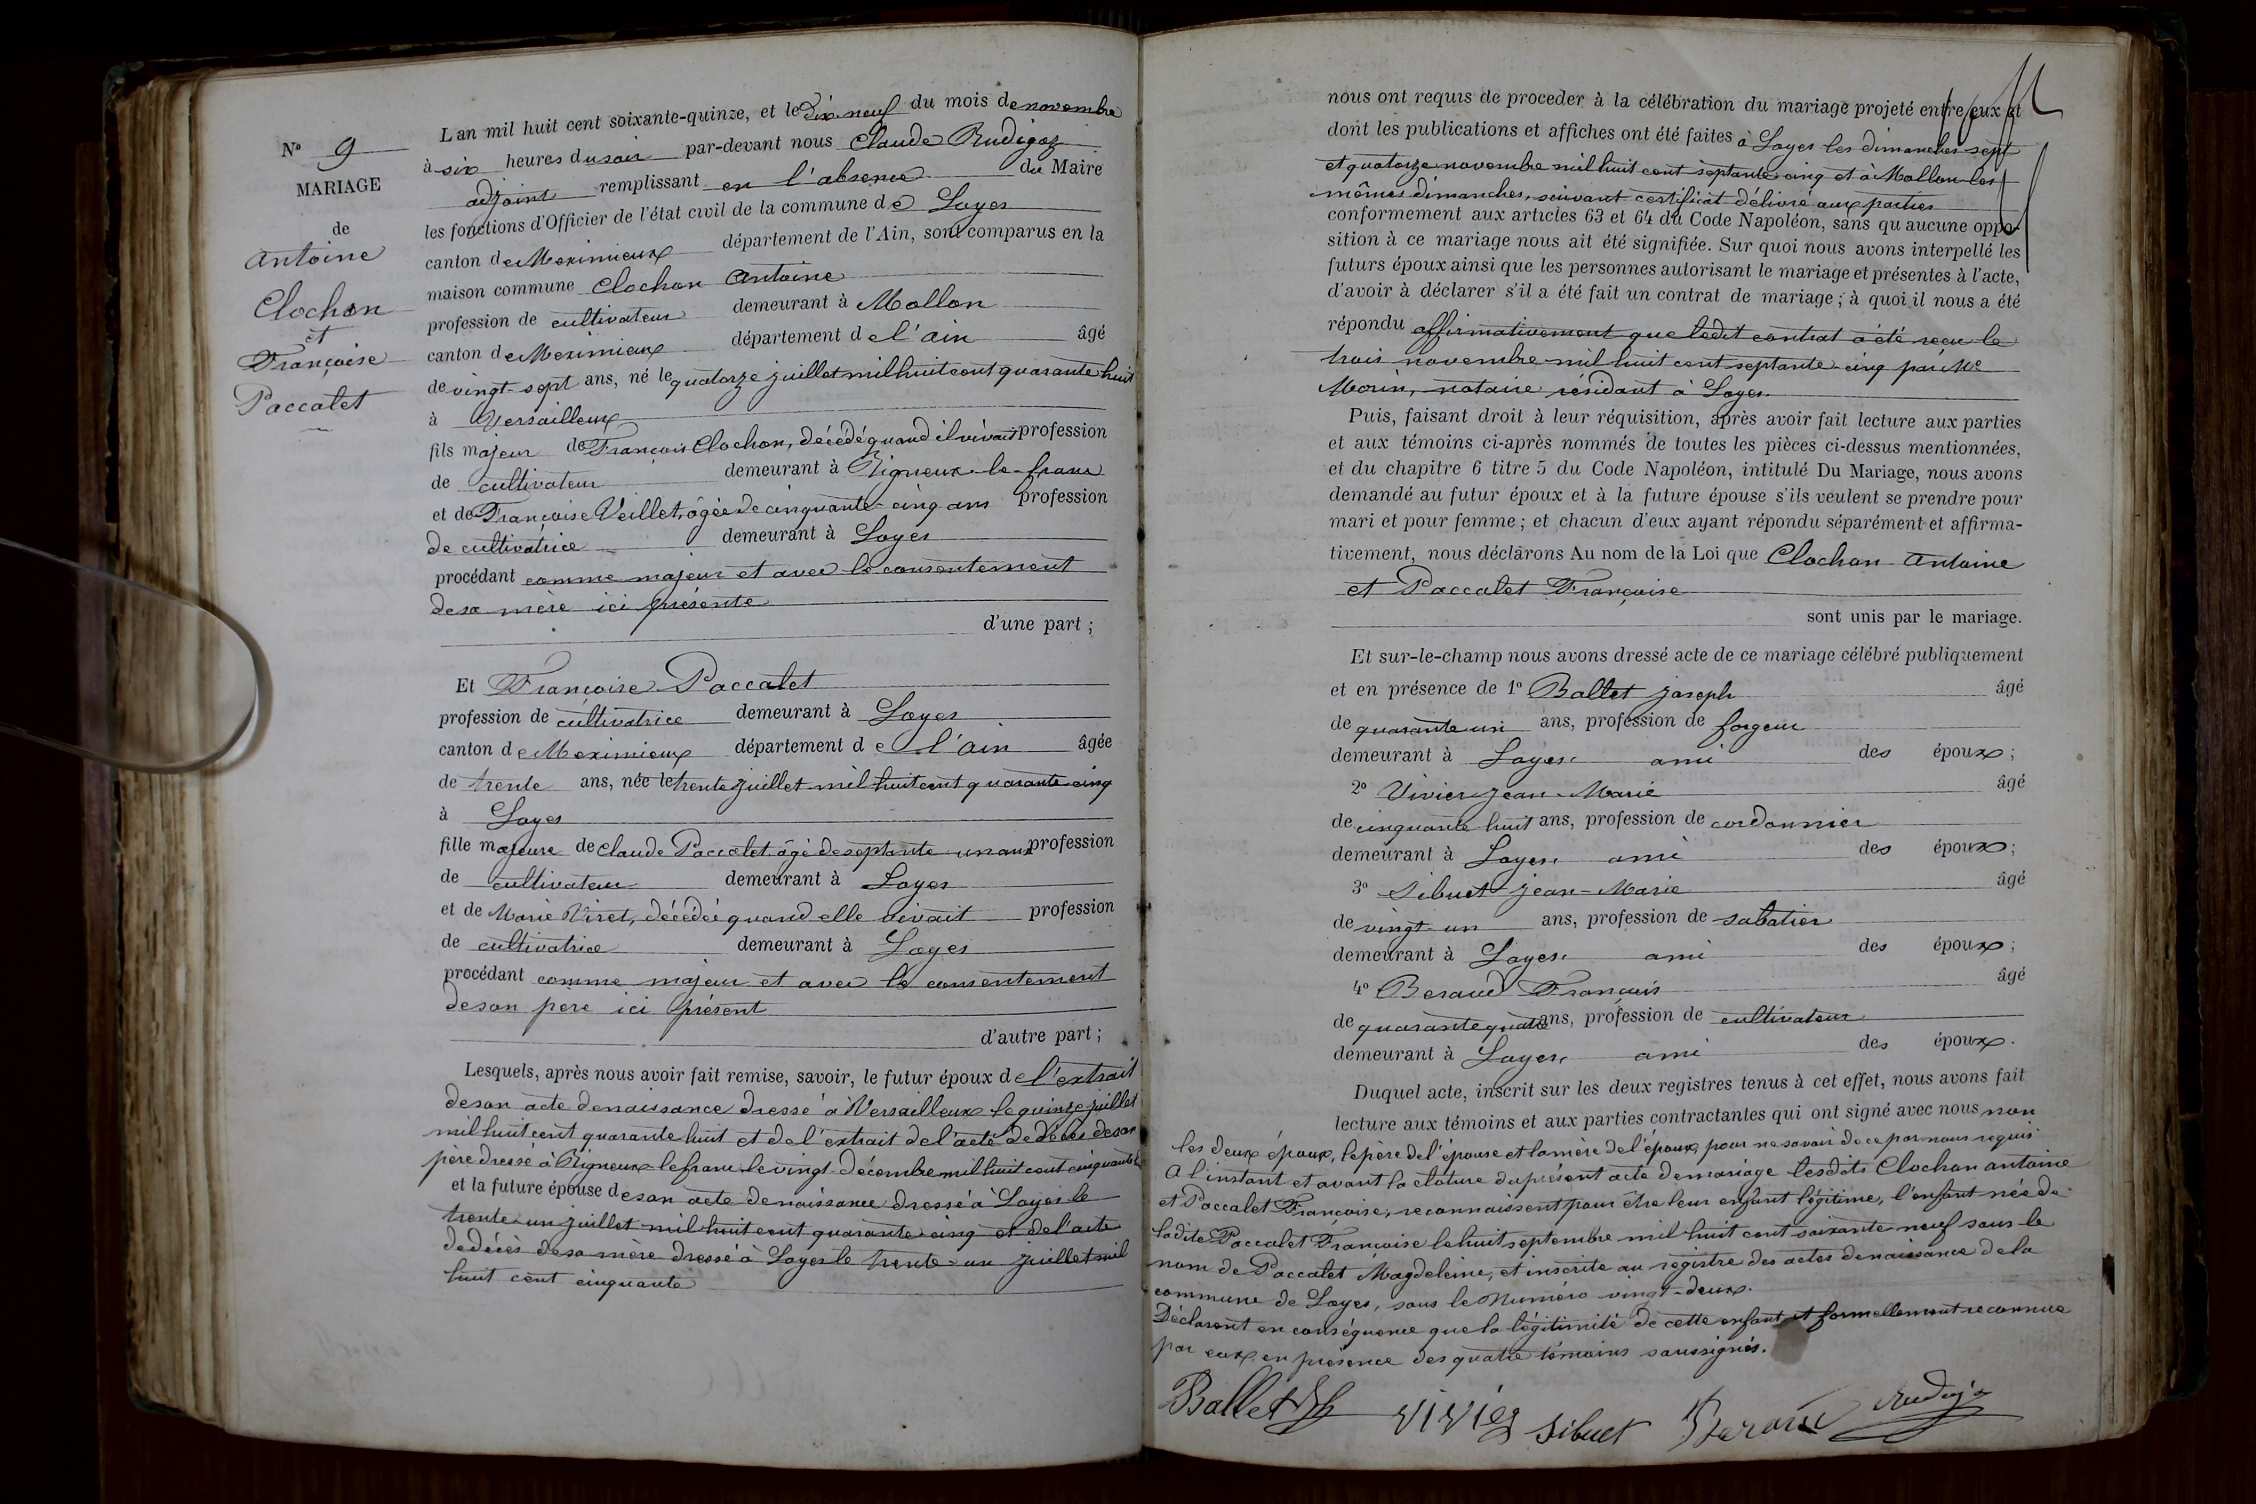 L'an mil huit cent soixante-quinze, et le Dix neuf du mois de novembre
N° 9
à six heures du soir par-devant nous Claude Rudigoz
MARIAGE
adjoint remplissant en l'absence du Maire
de
les fonctions d'Officier de l'état civil de la commune de Loyes
Antoine
canton de Meximieux département de l'Ain, sont comparus en la
maison commune Clochon Antoine
Clochon
profession de cultivateur demeurant à Mollon
et
canton de Meximieux département de l'ain âgé
Françoise
de vingt-sept ans, né le quatorze juillet mil huit cent quarante huit
Paccalet
à Versailleux
fils majeur de François Clochon, décédé quand il vivait profession
de cultivateur demeurant à Rigneux-le-franc
et de Françoise Veillet, âgée de cinquante-cinq ans profession
de cultivatrice demeurant à Loyes
procédant comme majeur et avec le consentement
de sa mère ici présente
d'une part ;
Et Françoise Paccalet
profession de cultivatrice demeurant à Loyes
canton de Meximieux département de l'ain âgée
de trente ans, née le trente juillet mil huit cent quarante cinq
à Loyes
fille majeure de Claude Paccalet âgé de septante un ans profession
de cultivateur demeurant à Loyes
et de Marie Viret, décédée quand elle vivait profession
de cultivatrice demeurant à Loyes
procédant comme majeur et avec le consentement
de son père ici présent
d'autre part ;
Lesquels, après nous avoir fait remise, savoir, le futur époux de l'extrait
de son acte de naissance dressé à Versailleux le quinze juillet
mil huit cent quarante huit et de l'extrait de l'acte de décès de son
père dressé à Rigneux-le-franc le vingt décembre mil huit cent cinquante
et la future épouse de son acte de naissance dressé à Loyes le
trente-un juillet mil huit cent quarante cinq et de l'acte
de décès de sa mère dressé à Loyes le trente-un juillet mil
huit cent cinquante
nous ont requis de procéder à la célébration du mariage projeté entre eux et
dont les publications et affiches ont été faites à Loyes les dimanches sept
et quatorze novembre mil huit cent septante-cinq et à Mollon les
mêmes dimanches, suivant certificat délivré aux parties
conformément aux articles 63 et 64 du Code Napoléon, sans qu'aucune oppo-
sition à ce mariage nous ait été signifiée. Sur quoi nous avons interpellé les
futurs époux ainsi que les personnes autorisant le mariage et présentes à l'acte,
d'avoir à déclarer s'il a été fait un contrat de mariage ; à quoi il nous a été
répondu affirmativement que ledit contrat a été reçu le
trois novembre mil huit cent septante-cinq par Me
Morin, notaire résidant à Loyes.
Puis, faisant droit à leur réquisition, après avoir fait lecture aux parties
et aux témoins ci-après nommés de toutes les pièces ci-dessus mentionnées,
et du chapitre 6 titre 5 du Code Napoléon, intitulé Du Mariage, nous avons
demandé au futur époux et à la future épouse s'ils veulent se prendre pour
mari et pour femme ; et chacun d'eux ayant répondu séparément et affirma-
tivement, nous déclarons Au nom de la Loi que Clochon Antoine
et Paccalet Françoise
sont unis par le mariage.
Et sur-le-champ nous avons dressé acte de ce mariage célébré publiquement
et en présence de 1° Ballet Joseph âgé
de quarante un ans, profession de forgeur
demeurant à Loyes, ami des époux ;
2° Vivier Jean-Marie âgé
de cinquante huit ans, profession de cordonnier
demeurant à Loyes, ami des époux ;
3° Sibuet Jean-Marie âgé
de vingt-un ans, profession de sabatier
demeurant à Loyes, ami des époux ;
4° Beraud François âgé
de quarante quatre ans, profession de cultivateur
demeurant à Loyes, ami des époux.
Duquel acte, inscrit sur les deux registres tenus à cet effet, nous avons fait
lecture aux témoins et aux parties contractantes qui ont signé avec nous non
les deux époux, le père de l'épouse et la mère de l'époux, pour ne savoir de ce par nous requis
A l'instant et avant la cloture du présent acte de mariage lesdits Clochon antoine
et Paccalet Françoise, reconnaissent pour être leur enfant légitime, l'enfant née de
ladite Paccalet Françoise le huit septembre mil huit cent soixante neuf sous le
nom de Paccalet Magdeleine, et inscrite au registre des actes de naissance de la
commune de Loyes, sous le Numéro vingt-deux.
Déclarent en conséquence que la légitimité de cette enfant est formellement reconnue
par eux, en présence des quatre témoins soussignés.
Ballet Vivier Sibuet Beraud Rudigoz